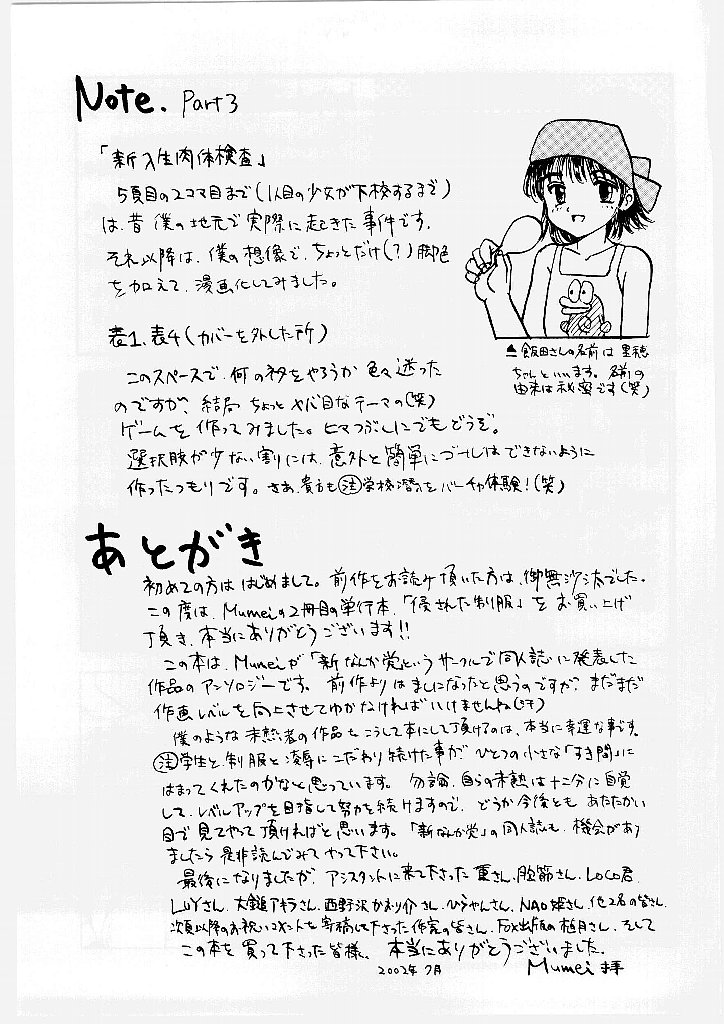 Note. Part3
「新入生肉体検査」
5頁目の2コマ目まで(1人目の少女が下校するまで)
は、昔 僕の地元で実際に起きた事件です。
それ以降は、僕の想像で、ちょっとだけ(?)脚色
を加えて、漫画化してみました。
▲飯田さんの名前は 里穂
ちゃんといいます。名前の
由来は秘密です(笑)
表1、表4(カバーを外した所)
このスペースで、何のネタをやろうか 色々迷った
のですが、結局 ちょっとヤバ目なテーマの(笑)
ゲームを作ってみました。ヒマつぶしにでもどうぞ。
選択肢が少ない割りには、意外と簡単にゴールはできないように
作ったつもりです。さあ、貴方も 学校潜入をバーチャ体験!(笑)
あとがき
初めての方は はじめまして。前作をお読み頂いた方は、御無沙汰でした。
この度は、Mumeiの2冊目の単行本、「侵された制服」を お買い上げ
頂き、本当にありがとうございます!!
この本は、Mumeiが「新なんか党」というサークルで同人誌に発表した
作品のアンソロジーです。前作よりはましになったと思うのですが、まだまだ
作画レベルを向上させてゆかなければいけませんね(汗)
僕のような未熟者の作品をこうして本にして頂けるのは、本当に幸運な事です。
学生と制服と凌辱にこだわり続けた事が、ひとつの小さな「すき間」に
はまってくれたのかなと思っています。勿論、自らの未熟は十二分に自覚
して、レベルアップを目指して努力を続けますので、どうか今後とも あたたかい
目で見てやって頂ければと思います。「新なんか党」の同人誌も、機会があり
ましたら是非読んでみてやって下さい。
最後になりましたが、アシスタントに来て下さった さん、 さん、LOCO君、
LUYさん、大鎚アキラさん、西野沢かおり介さん、ひろゃんさん、NAO姫さん、他2名の皆さん、
次頁以降のお祝いコメントを寄稿して下さった作家の皆さん、FOX出版の柚月さん、そして
この本を買って下さった皆様、本当にありがとうございました。
2002年7月 Mumei 拝